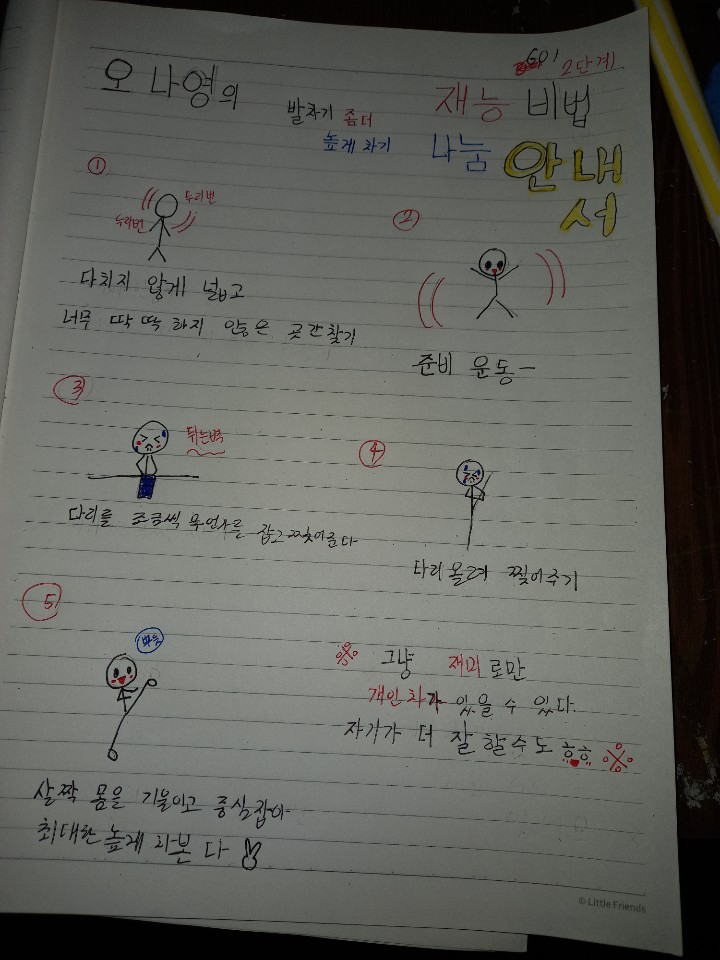 GO! 2단계
오 나영의
발차기 좀더
높게 차기
재능 비법
나눔 안내
서
①
두리번
두리번
다치지 않게 넓고
너무 딱 딱 하지 안흥은 곳 간찾기
②
준비 운동-
③
뒤는벽
다리를 조금씩 무언가를 잡고 찢어준다
④
다리 올려 찢어주기
⑤
빠둥
※ 그냥 재미로만
개인차가 있을 수 있다.
자기가 더 잘 할수도 ㅎㅎ ※
살짝 몸을 기울이고 중심잡아
최대한 높게 차본 다
© Little Friends